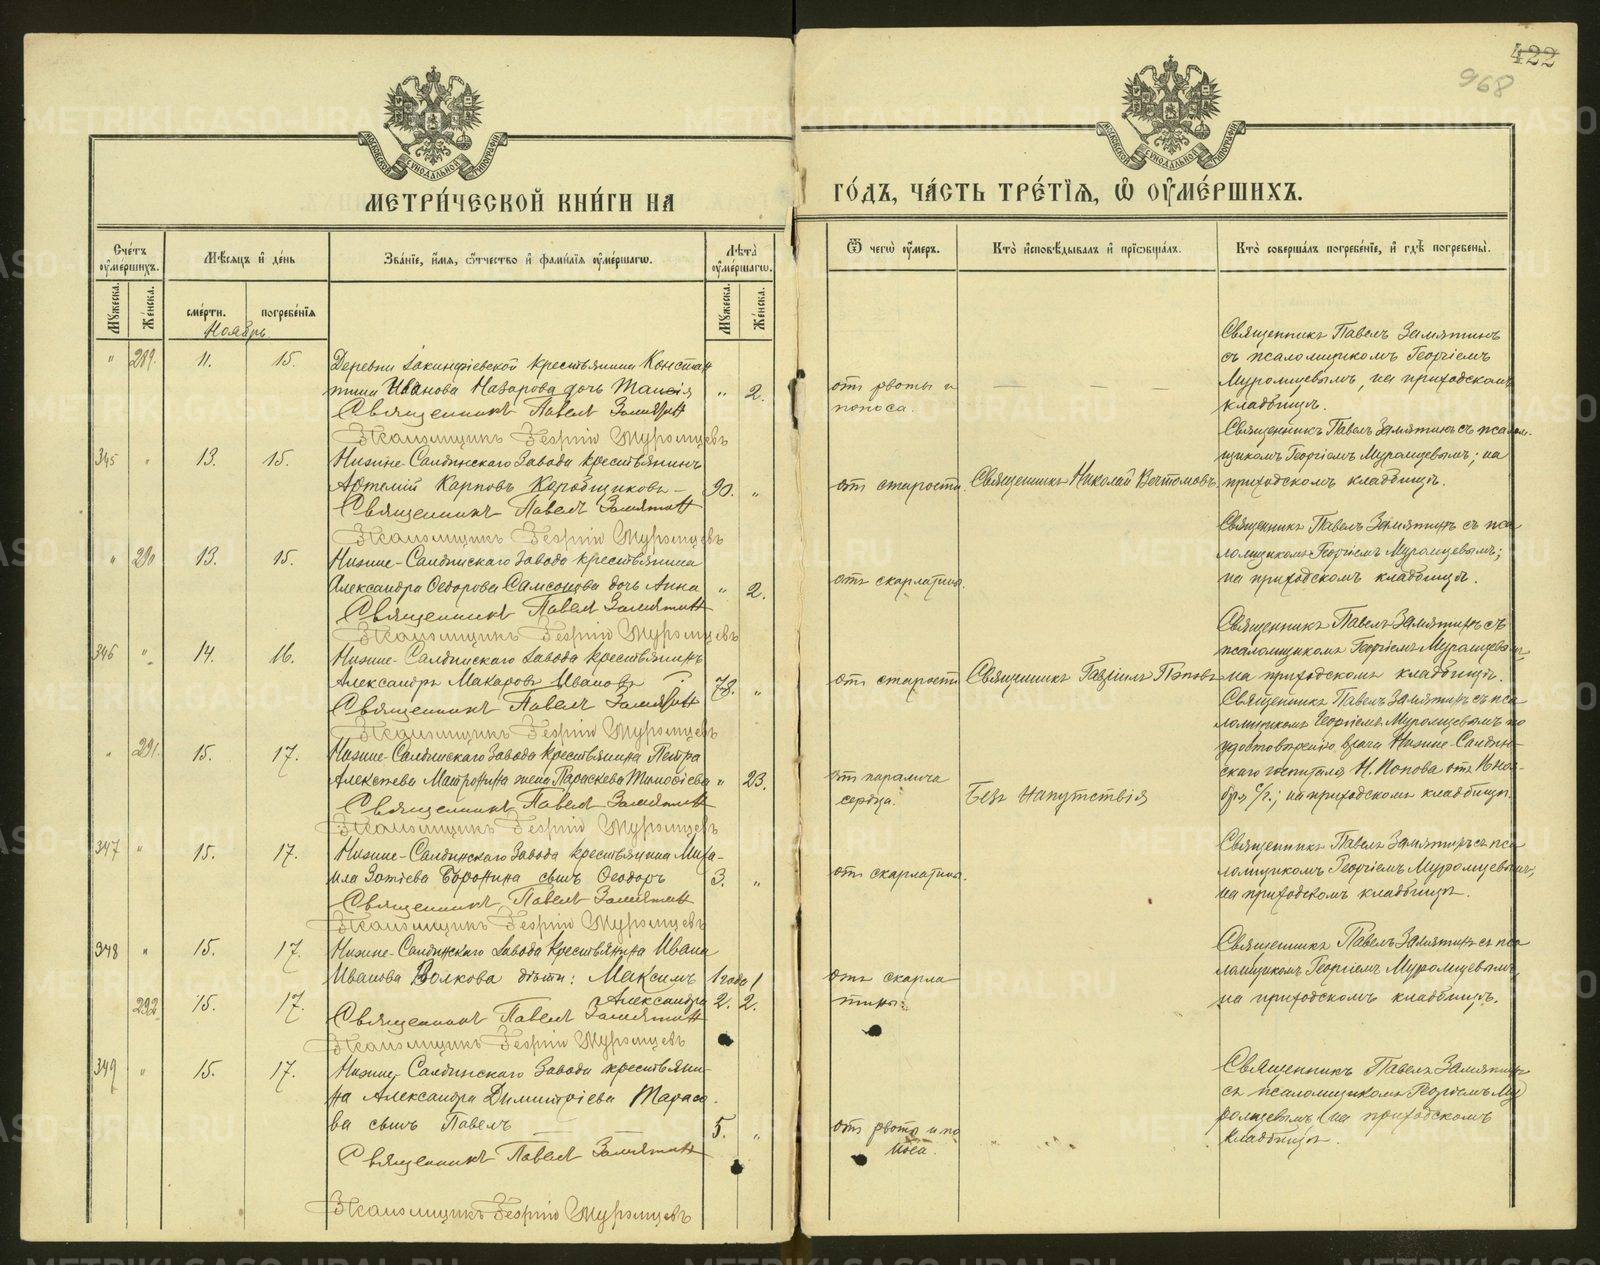 422
968
МЕТРИ́ЧЕСКОЙ КНИ́ГИ НА
ГО́ДЪ, ЧА́СТЬ ТРЕ́ТЇЯ, Ѡ҆ ОУ҆МЕ́РШИХЪ.
Сче́тъ оу҆ме́ршихъ.
Мꙋ́жеска.
Же́нска.
Мѣ́сяцъ и҆ де́нь
сме́рти.
погребе́нїя
Ноябрь
Зва́нїе, и҆́мя, ѻ҆́тчество и҆ фами́лїя оу҆ме́ршагѡ.
Лѣ́та оу҆ме́ршагѡ.
Мꙋ́жеска.
Же́нска.
Ѿ чегѡ̀ оу҆́меръ.
Кто̀ и҆сповѣ́дывалъ и҆ прїѡбща́лъ.
Кто̀ соверша́лъ погребе́нїе, и҆ гдѣ̀ погребены̀.
" 289. 11. 15.
Деревни Акинфіевской крестьянина Констан
тина Иванова Назарова дочь Таисія " 2.
Священникъ Павелъ Замятинъ
Псаломщикъ Георгій Муромцевъ
отъ рвоты и
поноса.
Священникъ Павелъ Замятинъ
съ псаломщикомъ Георгіемъ
Муромцевымъ, на приходскомъ
кладбищѣ.
345 " 13. 15.
Нижне-Салдинскаго Завода крестьянинъ
Артемій Карповъ Коробщиковъ – 90. "
Священникъ Павелъ Замятинъ
Псаломщикъ Георгій Муромцевъ
отъ старости.
Священникъ Николай Вечтомовъ
Священникъ Павелъ Замятинъ съ псалом-
щикомъ Георгіемъ Муромцевымъ; на
приходскомъ кладбищѣ.
" 290 13. 15.
Нижне-Салдинскаго Завода крестьянина
Александра Ѳедорова Самсонова дочь Анна " 2.
Священникъ Павелъ Замятинъ
Псаломщикъ Георгій Муромцевъ
отъ скарлатины.
Священникъ Павелъ Замятинъ съ пса
ломщикомъ Георгіемъ Муромцевымъ;
на приходскомъ кладбищѣ.
346 " 14. 16.
Нижне-Салдинскаго Завода крестьянинъ
Александръ Макаровъ Ивановъ 78. "
Священникъ Павелъ Замятинъ
Псаломщикъ Георгій Муромцевъ
отъ старости
Священникъ Гавріилъ Поповъ
Священникъ Павелъ Замятинъ съ
псаломщикомъ Георгіемъ Муромцевым
на приходскомъ кладбищѣ.
" 291. 15. 17.
Нижне-Салдинскаго Завода крестьянина Петра
Алексѣева Матронина жена Параскева Тимофіева " 23.
Священникъ Павелъ Замятинъ
Псаломщикъ Георгій Муромцевъ
отъ паралича
сердца.
Безъ напутствія
Священникъ Павелъ Замятинъ съ пса
ломщикомъ Георгіемъ Муромцевымъ по
удостовѣренію врача Нижне-Салдин-
скаго госпиталя Н. Попова отъ
бря с/г.; на приходскомъ кладбищѣ.
347 " 15. 17.
Нижне-Салдинскаго Завода крестьянина Миха-
ила Зотіева Воронина сынъ Ѳеодоръ 3. "
Священникъ Павелъ Замятинъ
Псаломщикъ Георгій Муромцевъ
отъ скарлатины.
Священникъ Павелъ Замятинъ съ пса
ломщикомъ Георгіемъ Муромцевымъ,
на приходскомъ кладбищѣ.
348 " 15. 17.
Нижне-Салдинскаго Завода крестьянина Ивана
Иванова Волкова дѣти: Максимъ 1 года
292 15. 17. Александра 2. 2.
Священникъ Павелъ Замятинъ
Псаломщикъ Георгій Муромцевъ
отъ скарла
тины.
Священникъ Павелъ Замятинъ съ пса
ломщикомъ Георгіемъ Муромцевымъ
на приходскомъ кладбищѣ.
349 " 15. 17.
Нижне-Салдинскаго Завода крестьяни-
на Александра Димитріева Тарасо-
ва сынъ Павелъ 5. "
Священникъ Павелъ Замятинъ
Псаломщикъ Георгій Муромцевъ
отъ рвоты и по
носа.
Священникъ Павелъ Замятинъ
съ псаломщикомъ Георгіемъ Му
ромцевымъ на приходскомъ
кладбищѣ.
METRIKI.GASO-URAL.RU